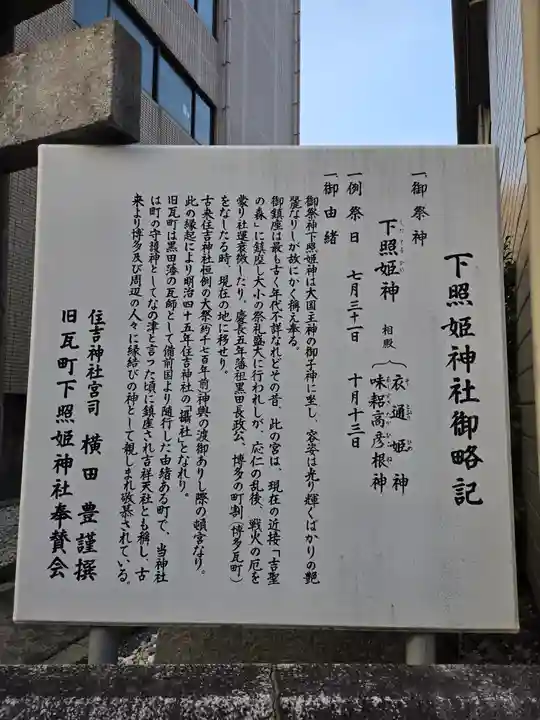 下照姫神社御略記
一、御祭神
下照姫神
したてるひめ
相殿
衣通姫神
そとおりひめ
味耜高彦根神
一、例祭日 七月三十一日 十月十三日
一、御由緒
御祭神下照姫神は大国主神の御子神に坐し、容姿は光り輝くばかりの艶
麗なりしが故にかく称え奉る。
御鎮座は最も古く年代不詳なれどその昔、此の宮は、現在の近接「吉聖
の森」に鎮座し大小の祭礼盛大に行われしが、応仁の乱後、戦火の厄を
蒙り社運衰微したり、慶長五年藩祖黒田長政公、博多の町割(博多瓦町)
をなしたる時、現在の地に移せり。
古来住吉神社恒例の大祭約千七百年前神輿の渡御ありし際の頓宮なり。
此の縁起により明治四十五年住吉神社の「攝社」となれり。
旧瓦町は黒田藩の瓦師として備前国より随行した由緒ある町で、当神社
は町の守護神としてなの津と言った頃に鎮座され吉祥天社とも称し、古
来より博多及び周辺の人々に縁結びの神として親しまれ敬慕されている。
住吉神社宮司 横田 豊謹撰
旧瓦町下照姫神社奉賛会